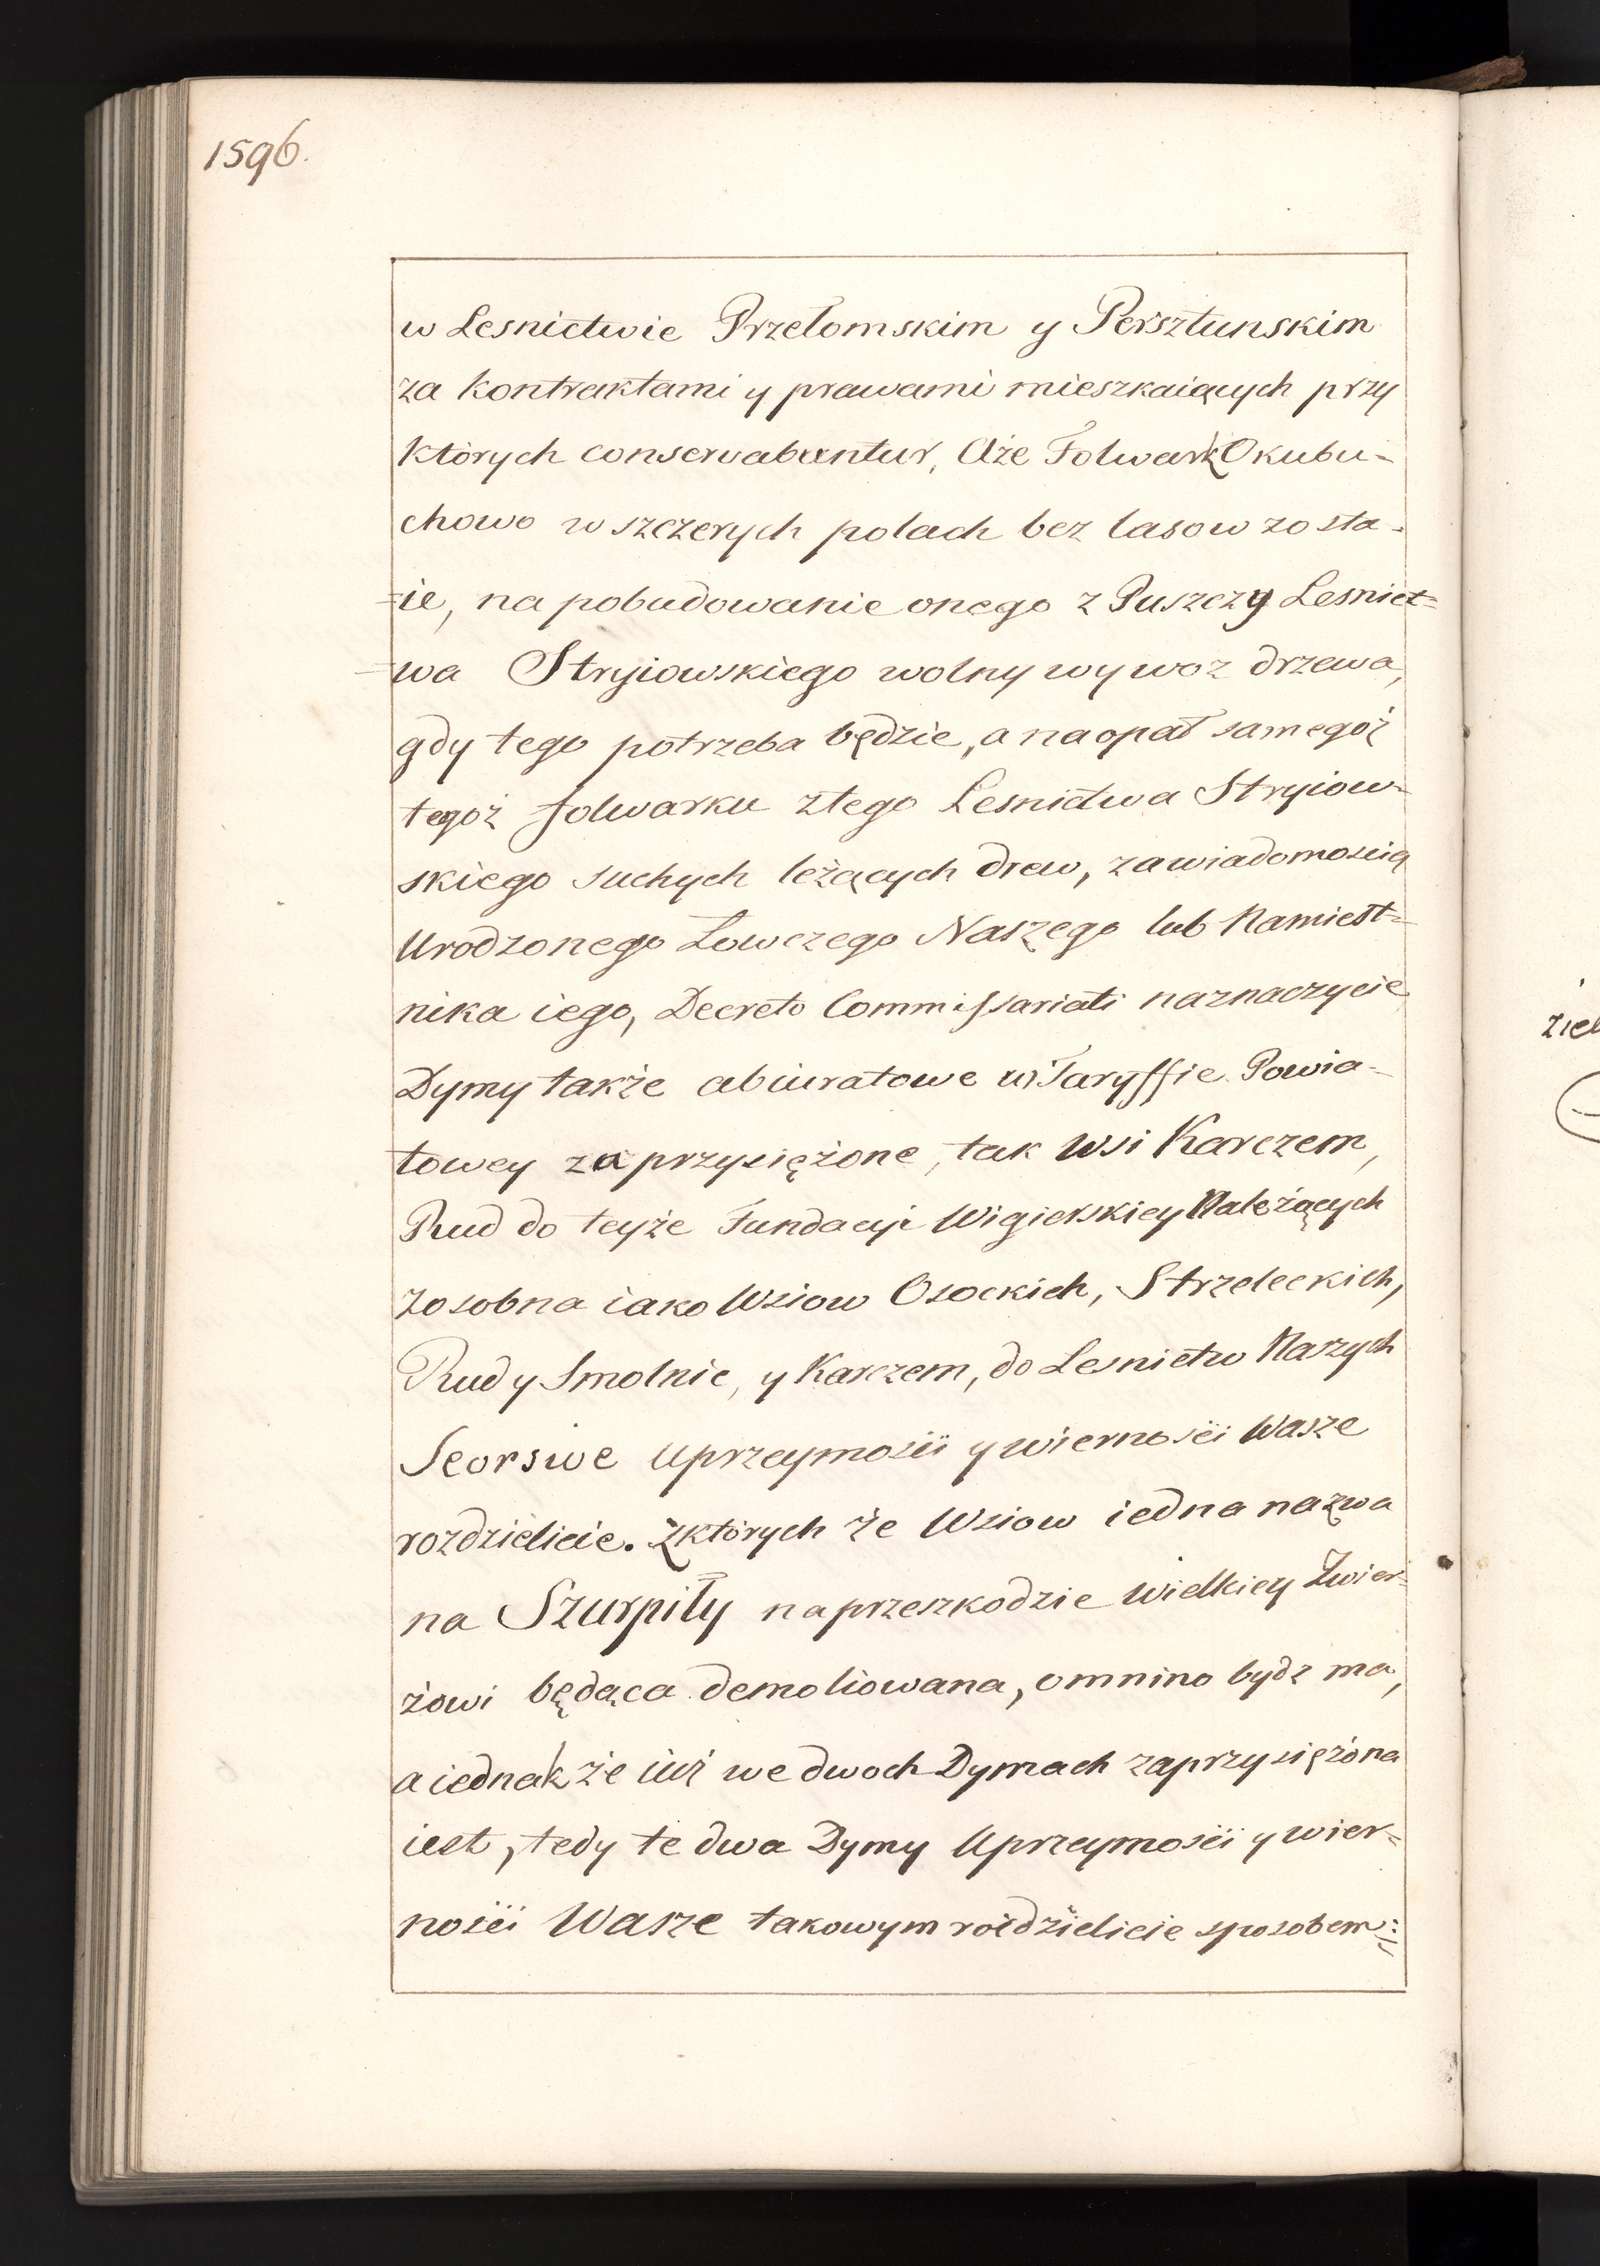 1596.
w Lesnictwie Przełomskim y Persztunskim
za kontraktami y prawami mieszkaiących przy
których conservabantur, Aże Folwark Okubu-
chowo w szczerych polach bez lasow zosta-
=ie, na pobudowanie onego z Puszczy Lesnict=
=wa Stryiowskiego wolny wywoz drzewa,
gdy tego potrzeba będzie, a na opał samegoż
tegoż folwarku z tego Lesnictwa Stryiow-
skiego suchych leżących drew, za wiadomoscią
Urodzonego Łowczego Naszego lub Namiest=
nika iego, Decreto Commissariati naznaczycie
Dymy także abiuratowe w Taryffie Powia-
towey zaprzysiężone, tak Wsi Karczem,
Rud do teyże Fundacyi Wigierskiey Należących
zosobna iako Wsiow Osockich, Strzeleckich,
Rudy Smolnic, y Karczem, do Lesnictw Naszych
Seorsive Uprzeymości y wierności Wasze
rozdzielicie. Zktórych że Wsiow iedna nazwa
na Szurpiły na przeszkodzie wielkiey Zwier-
żowi będąca demoliowana, omnino bydz ma,
a iednak że iuż we dwoch Dymach zaprzysiężona
iest, tedy te dwa Dymy Uprzeymości y wier-
ności Wasze takowym rozdzielicie sposobem: